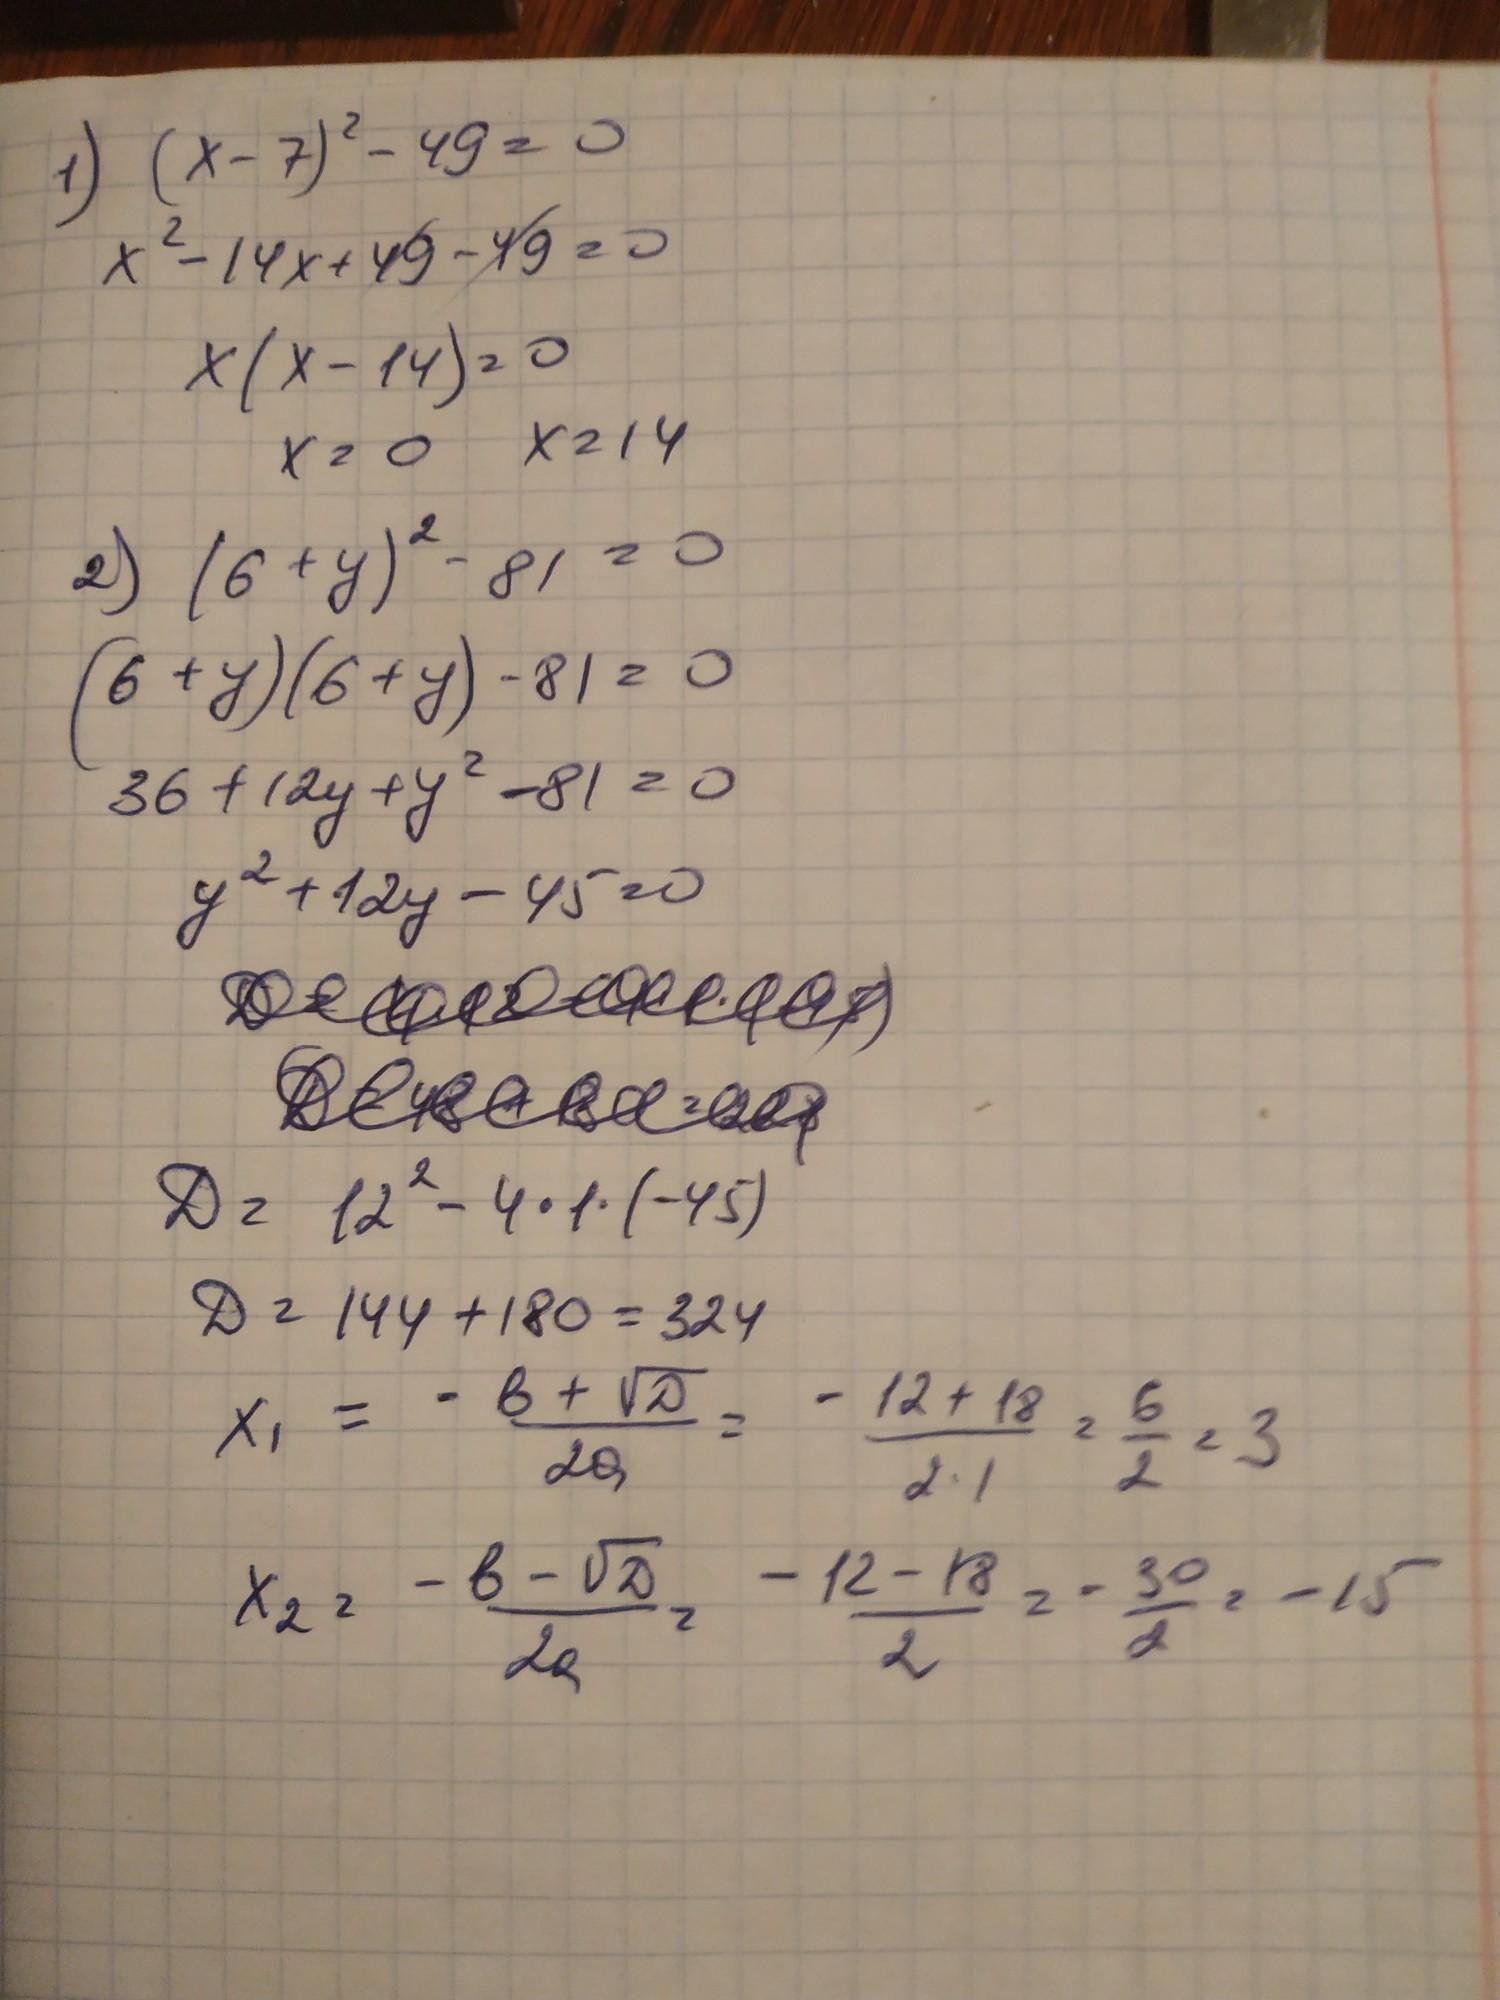 1) (x - 7)² - 49 = 0
x² - 14x + 49 - 49 = 0
x(x - 14) = 0
x = 0 x = 14
2) (6 + y)² - 81 = 0
(6 + y)(6 + y) - 81 = 0
36 + 12y + y² - 81 = 0
y² + 12y - 45 = 0
D = 12² - 4 · 1 · (-45)
D = 144 + 180 = 324
x₁ = - в + √D / 2a = - 12 + 18 / 2 · 1 = 6/2 = 3
x₂ = - в - √D / 2a = - 12 - 18 / 2 = - 30/2 = - 15